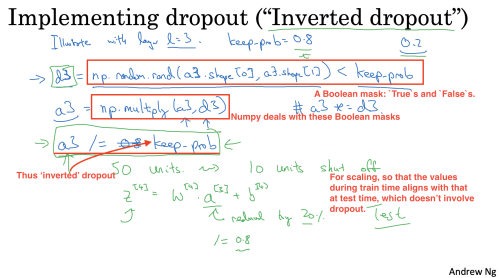 Implementing dropout ("Inverted dropout")
Illustrate with layer l=3. keep-prob = 0.8 0.2
→ d3 = np.random.rand(a3.shape[0], a3.shape[1]) < keep-prob
A Boolean mask: `True`s and `False`s.
a3 = np.multiply(a3, d3) # a3 *= d3
Numpy deals with these Boolean masks
→ a3 /= 0.8 keep-prob ←
Thus 'inverted' dropout
50 units. ⇝ 10 units shut off
For scaling, so that the values
during train time aligns with that
at test time, which doesn't involve
dropout.
z[4] = W[4] · a[3] + b[4]
reduced by 20%.
Test
/= 0.8
Andrew Ng